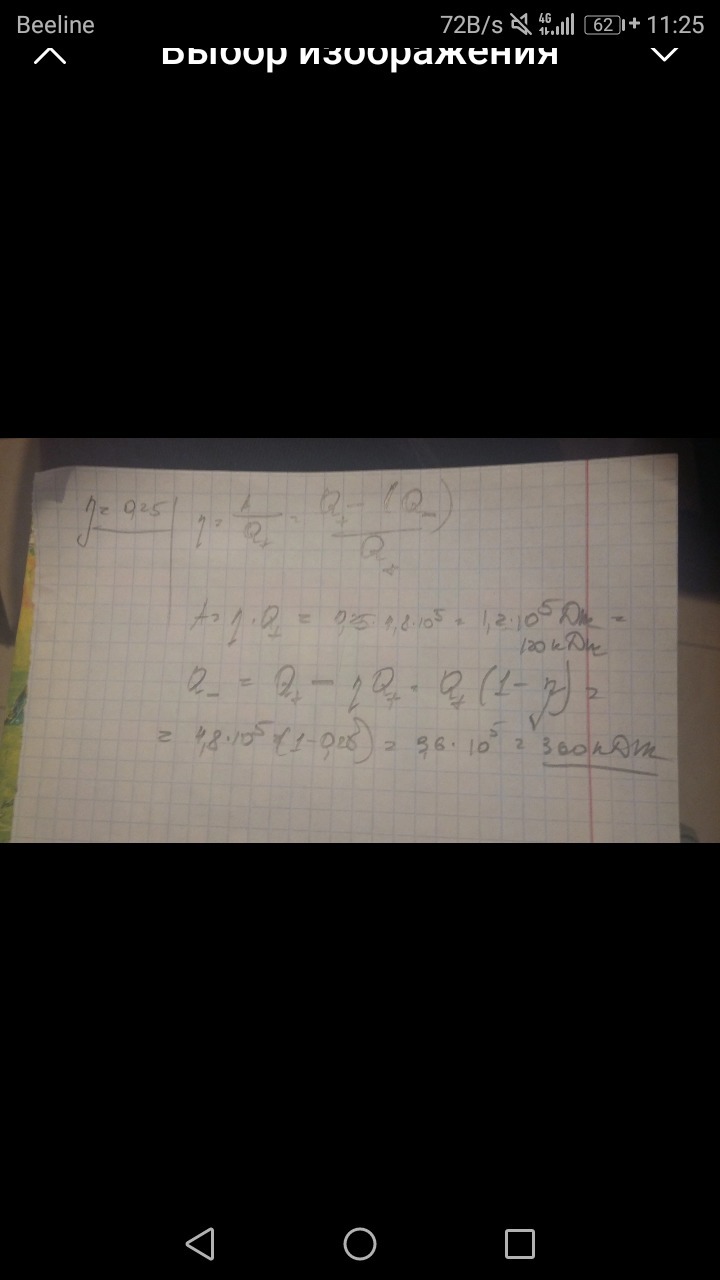 Beeline 72B/s 4G 62 11:25
Выбор изображения
η = 0,25 η = A/Q₊ = Q₊ - (Q₋)/Q₊
A = η · Q₊ = 0,25 · 4,8 · 10⁵ = 1,2 · 10⁵ Дж =
120 кДж
Q₋ = Q₊ - ηQ₊ = Q₊ (1 - η) =
= 4,8 · 10⁵ · (1 - 0,25) = 3,6 · 10⁵ = 360 кДж